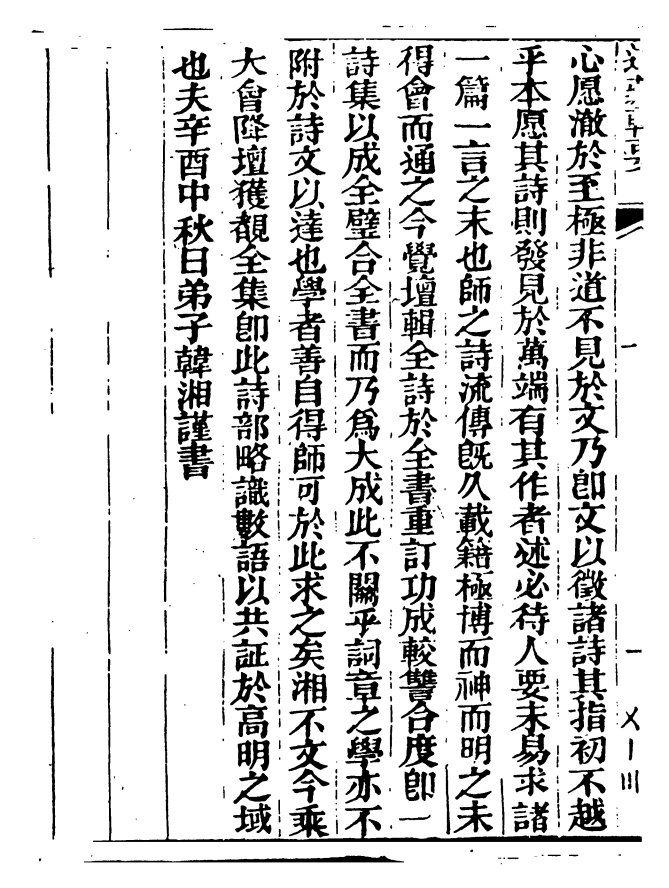 心愿澈於至極非道不見於文乃卽文以徵諸詩其指初不越
乎本愿其詩則發見於萬端有其作者述必待人要未易求諸
一篇一言之末也師之詩流傳旣久載籍極博而神而明之未
得會而通之今覺壇輯全詩於全書重訂功成較讐合度卽一
詩集以成全璧合全書而乃爲大成此不關乎詞章之學亦不
附於詩文以達也學者善自得師可於此求之矣湘不文今乘
大會降壇獲覩全集卽此詩部略識數語以共証於高明之域
也夫辛酉中秋日弟子韓湘謹書